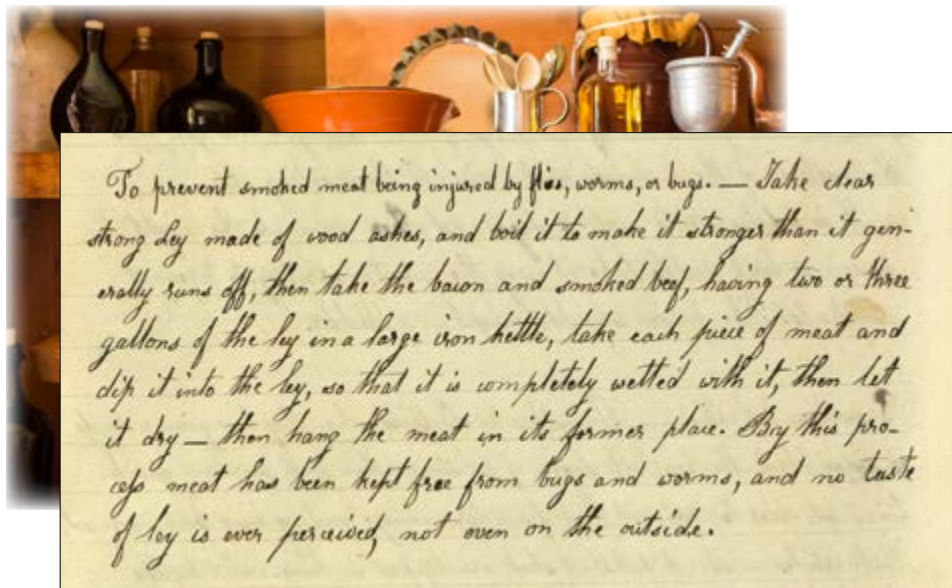 To prevent smoked meat being injured by flies, worms, or bugs. — Take clear
strong Ley made of wood ashes, and boil it to make it stronger than it gen-
erally runs off, then take the bacon and smoked beef, having two or three
gallons of the ley in a large iron kettle, take each piece of meat and
dip it into the ley, so that it is completely wetted with it, then let
it dry — then hang the meat in its former place. By this pro-
cess meat has been kept free from bugs and worms, and no taste
of ley is ever perceived, not even on the outside.